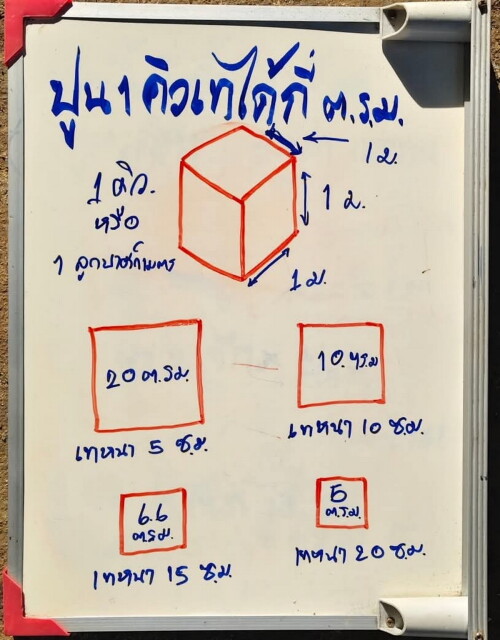 ปูน 1 คิวเทได้กี่ ต.ร.ม.
1 ม.
1 คิว.
หรือ
1 ลูกบาศก์เมตร
1 ม.
1 ม.
20 ต.ร.ม.
10.ต.ร.ม
เทหนา 5 ซ.ม.
เทหนา 10 ซ.ม.
6.6
ต.ร.ม.
5
ต.ร.ม.
เทหนา 15 ซ.ม.
เทหนา 20 ซ.ม.